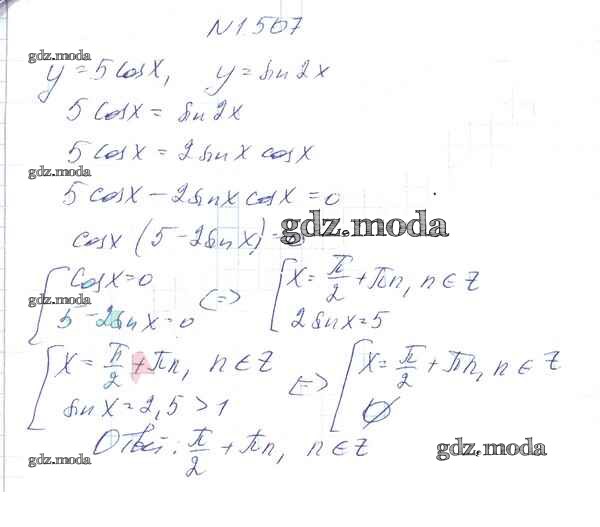 N1507
gdz.moda
y = 5 cos x, y = sin 2x
5 cos x = sin 2x
5 cos x = 2 sin x cos x
gdz.moda
5 cos x - 2 sin x cos x = 0
cos x (5 - 2 sin x) =
gdz.moda
{ cos x = 0 <=> { x = π/2 + πn, n ∈ Z
gdz.moda
5 - 2 sin x = 0 2 sin x = 5
{ x = π/2 + πn, n ∈ Z <=> [ x = π/2 + πn, n ∈ Z
sin x = 2,5 > 1 ∅
Ответ: π/2 + πn, n ∈ Z
gdz.moda gdz.moda